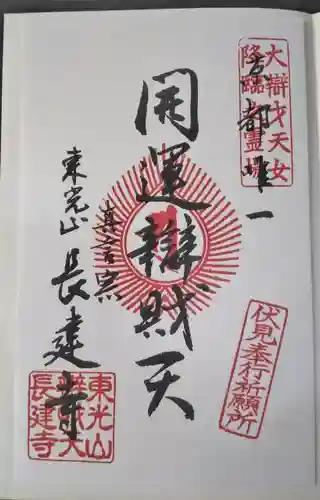 大辯才天女
降臨之霊場
京都唯一
開運辯財天
真言宗
東光山
長建寺
伏見奉行祈願所
東光山
辯財天
長建寺